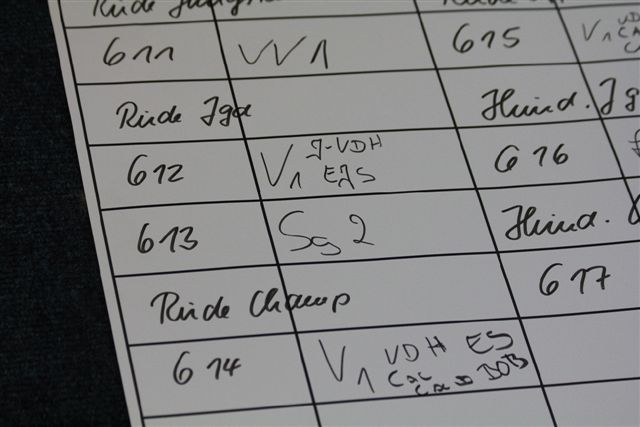 Rüde
611 VV1 615 V1
Rüde Jgd Hünd. Jg
612 V1 J-VDH EJS 616
613 Sg 2 Hünd.
Rüde Champ 617
614 V1 VDH ES CAC BOB